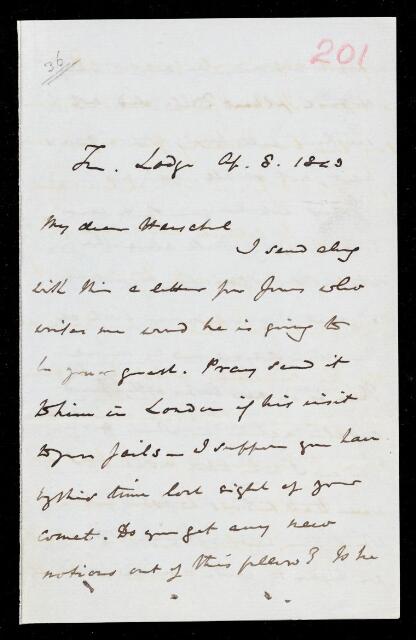 36
201
Tr. Lodge Ap. 8. 1843
My dear Herschel
I send along
with this a letter for Jones who
writes me word he is going to
be your guest. Pray send it
to him in London if his visit
to you fails – I suppose you have
by this time lost sight of your
comet. Do you get any new
notions out of this fellow? Is he